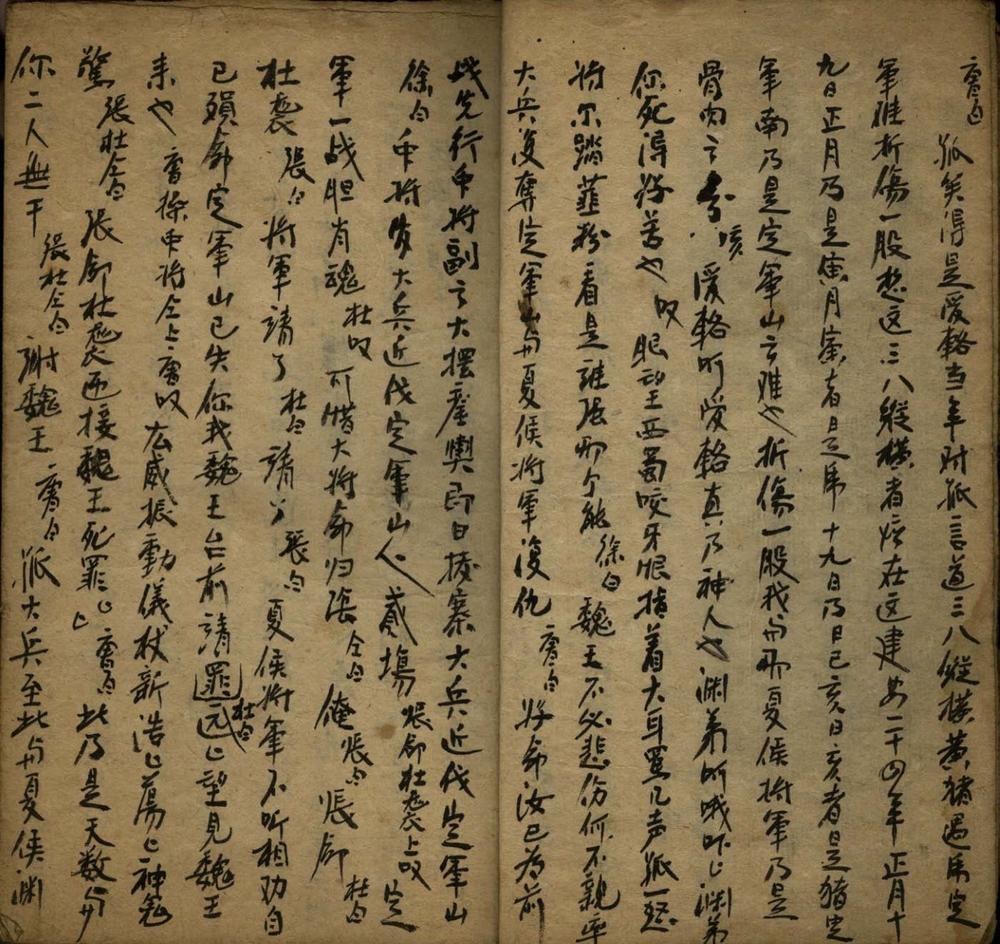 曹白 孤笑得是爰輅当年对孤言道三八縱橫黄猪遇虎定
軍难折傷一股想这三八縱橫者应在这建安二十四年正月十
九日正月乃是寅月寅者是虎十九日乃是己亥日亥者是猪定
軍南乃是定軍山之难也折傷一股我与那夏侯将軍乃是
骨肉之分 咳 爰輅吓爰輅真乃神人也渊弟吓哦吓乚渊弟
你死得好苦也 叹 眼望西蜀咬牙恨指着大耳罵几声孤一怒
将尔踏虀粉看是誰張那个能 徐白 魏王不必悲伤何不親率
大兵復奪定軍山与夏侯将軍復仇 曹白 将命汝已为前
战先行中将副之大摆銮輿即日拔寨大兵近伐定軍山
徐白 中将发大兵近伐定軍山人 貳塲 張郃杜袭上叹 定
軍一战胆肖魂 杜叹 可惜大将命归張 仝白 俺 張白 張郃 杜白
杜袭 張白 将軍請了 杜白 請了 張白 夏侯将軍不听相劝自
已殞命定軍山已失你我魏王台前請罪 杜白 远乚望見魏王
来也 曹操中将仝上曹叹 広威振動儀杖新浩乚蕩乚神鬼
驚 張杜仝白 張郃杜袭迎接魏王死罪乚乚 曹白 此乃是天数与
你二人無干 張杜仝白 謝魏王 曹白 孤大兵至此与夏侯渊